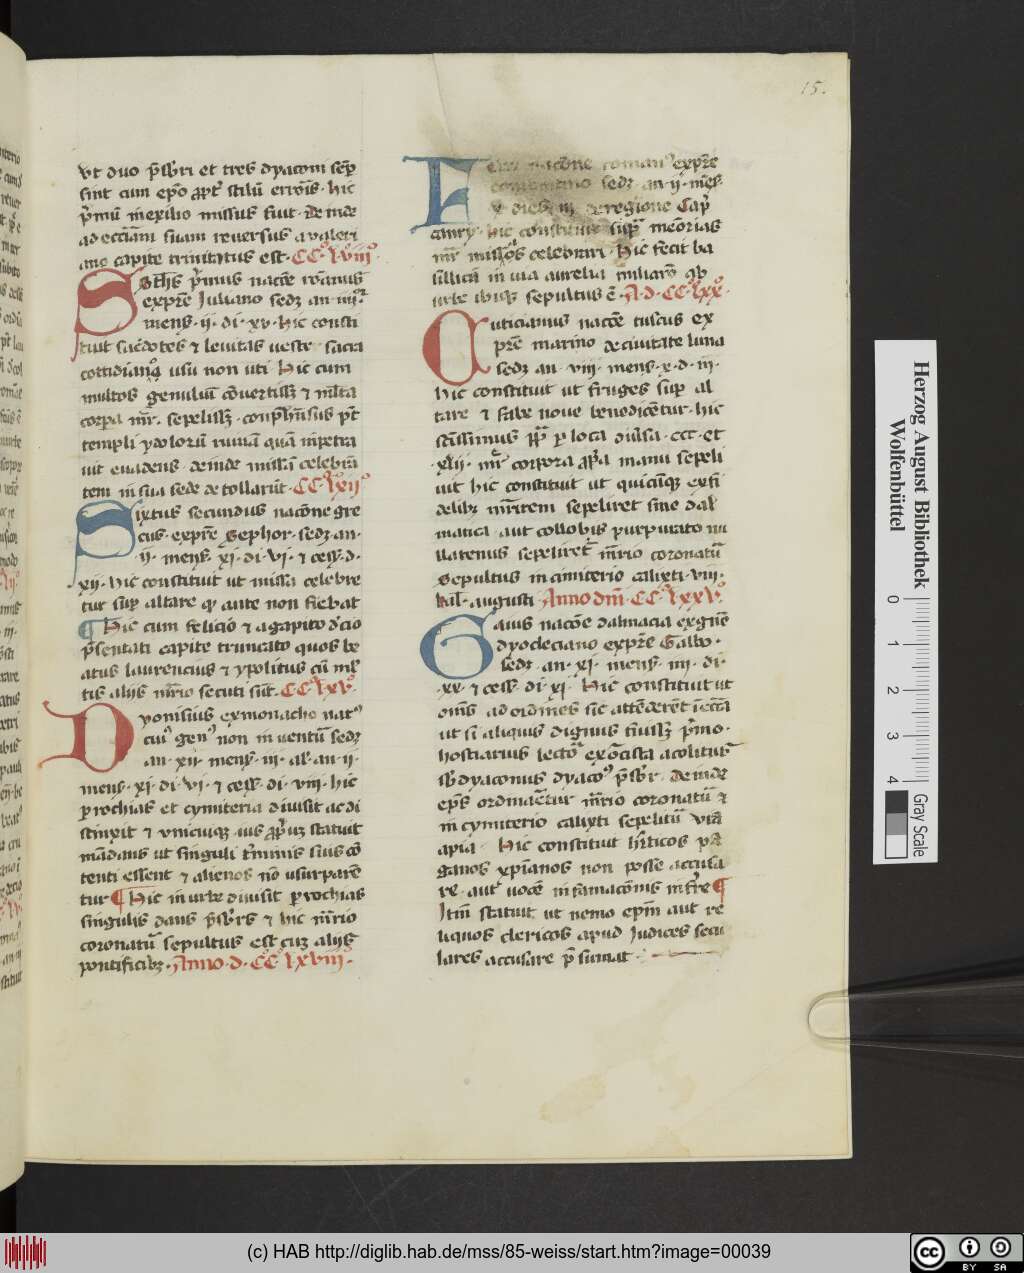 15.
vt duo p̄sbri et tres dyaconi semp
sint cum ep̄o ꝓpt stilū erroris · hic
p̄mū in exilio missus fuit · deinde
ad eccl̄iam suam reuersus a valeri
ano capite trūcatus est · CC° lviii°
Steph̄s p̄imus nac̄oe rōanus
ex pr̄e Juliano sedꝫ an · iiii°r
mens · ii · di · xv · Hic consti
tuit sac̄dotes ⁊ leuitas veste sacra
cottidiana usu non uti Hic cum
multos gentiliū c̄ouertissꝫ ⁊ ml̄ta
corpa mr̄ · sepelissꝫ · conp̄hensus pt̄
templi ydolorū ruinā quā inpetra
uit euadens deinde missā celebrā
tem in sua sede decollarūt · CC° lxii°
Sixtus secundus nac̄one gre
cus · ex pr̄e Sephor · sedꝫ · an ·
ii · mens · xi · di · vi · ⁊ cess · d ·
xii · hic constituit ut missa celebre
tur sup altare qd ante non fiebat
¶ Hic cum felicio ⁊ agapito d̄cio
p̄sentati capite truncato quos be
atus laurencius ⁊ ypolitus cū ml̄
tis alijs mr̄io secuti sūt · CC° lxv°
Dyonisius ex monacho nat°
cui° gen° non inuentū sedꝫ
an · xii · mens · iii · al · an · ii ·
mens · xi · di · vi · ⁊ cess · di · viii · hic
prochias et cymiteria diuisit ac di
stinxit ⁊ vnicuiqꝫ ius ꝓpuꝫ statuit
mādans ut singuli t̄minis suis cō
tenti essent ⁊ alienos nō usurparē
tur ¶ Hic in urbe diuisit prochias
singulis dans p̄sbrs ⁊ hic mr̄io
coronatū sepultus est cuꝫ alijs
pontificibꝫ · Anno · d · CC° lxviii°
Felix nac̄one roman° ex pr̄e
sedꝫ · an · ii · mēs
x · dieb · iii de regione Cap
canry · hic constituit suꝑ mēorias
mr̄ missas celebrari · Hic fecit ba
sillicā in via aurelia miliario ab
urbe ibiqꝫ sepultus ē · A · d · CC° lxx°
Euticianus nac̄oe tuscus ex
pr̄e marino de ciuitate luna
sedꝫ an · viii · mens · x · d · iii ·
hic constituit ut fruges sup al
tare ⁊ fabe noue benedicētur · hic
p loca diuersa · ccc · et
xlii · mr̄ corpora ꝓpa manu sepeli
uit hic constituit ut quicūqꝫ ex fi
delibꝫ mr̄irem sepeliret sine dal
matica · aut collobis purpurato nu
llatenus sepeliret mr̄io coronatū
Sepultus in cimiterio calixti · viii ·
kal · augusti Anno dnī · CC° lxxv°
Gaius nac̄oe dalmacia ex gnē
dyocleciano ex pr̄e Gallo ·
sedꝫ · an · xi · mens · iiii · di ·
xx · ⁊ cess · di · xi · Hic constituit ut
omīs ad ordines sic attēderent ī eccl̄a
ut si aliquis dignus fuissꝫ p̄mo ·
hostiarius lector exorcista acolitus
sb̄dyaconus dyaco° p̄sbr̄ · deinde
ep̄s ordinaretur mr̄io coronatū ⁊
in cymiterio calixti sepelitū via
apia · Hic constituit hr̄ticos pa
ganos xp̄ianos non posse accusa
re · aut vocē infamac̄onis inferre ¶
Itm̄ statuit ut nemo ep̄m aut re
liquos clericos apud Judices secu
lares accusare p̄sumat ·
Herzog August Bibliothek
Wolfenbüttel
0 1 2 3 4
Gray Scale
(c) HAB http://diglib.hab.de/mss/85-weiss/start.htm?image=00039
cc BY SA